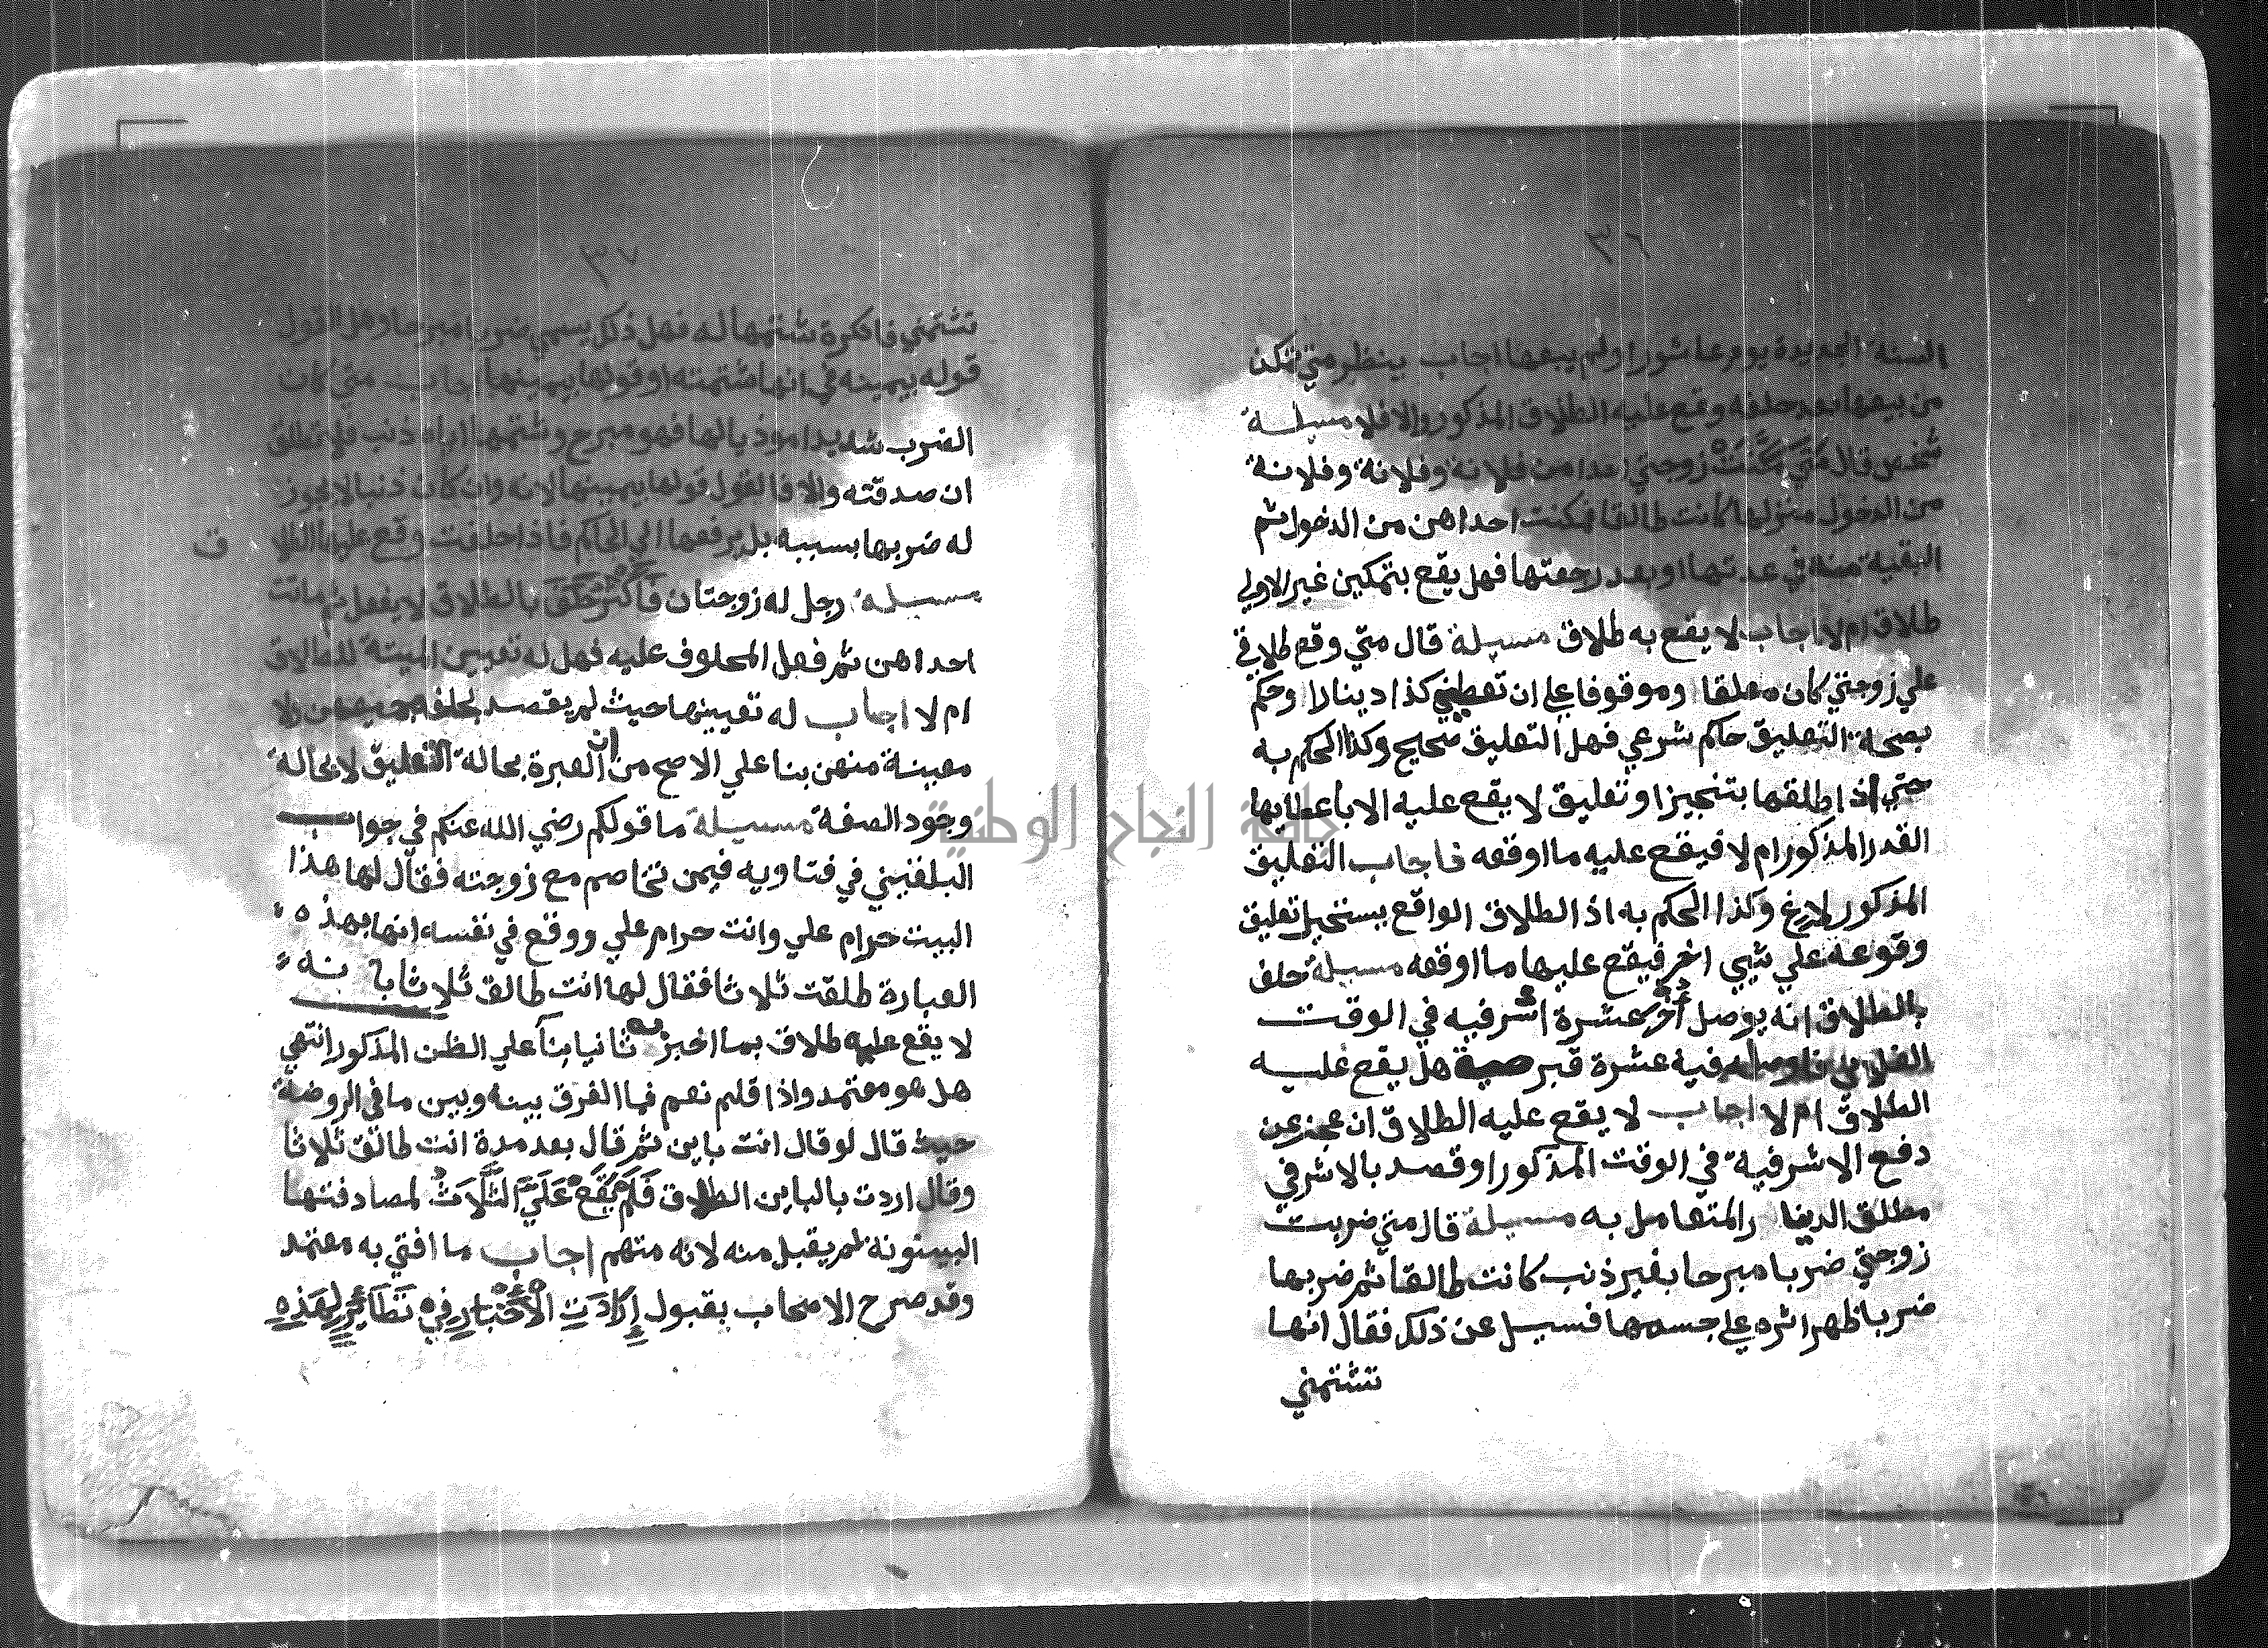 ٣٦
السنة الجديدة يوم عاشورا ولم يبعها اجاب ينظر متي تمكن
من بيعها بعد حلفه وقع عليه الطلاق المذكور والا فلا مسيلة
شخص قال متي مكنت زوجتي احدا من فلانة وفلانة وفلانة
من الدخول منزلها كانت طالقا فمكنت احداهن من الدخول ثم
البقية منه في عدتها او بعد رجعتها فهل يقع بتمكين غير الاولي
طلاق ام لا اجاب لا يقع به طلاق مسيلة قال متي وقع طلاقي
علي زوجتي كان معلقا وموقوفا علي ان تعطيني كذا دينارا وحكم
بصحة التعليق حاكم شرعي فهل التعليق صحيح وكذا الحكم به
حتي اذا طلقها بتنجيز او تعليق لا يقع عليه الا باعطايها
القدر المذكور ام لا فيقع عليه ما اوقعه فاجاب التعليق
المذكور لاغ وكذا الحكم به اذ الطلاق الواقع يستحيل تعليق
وقوعه علي شيي اخر فيقع عليها ما اوقعه مسيلة حلف
بالطلاق انه يوصل اخر عشرة اشرفيه في الوقت
الفلاني فاوصله فيه عشرة قبر صية هل يقع عليه
الطلاق ام لا اجاب لا يقع عليه الطلاق ان عجز عن
دفع الاشرفية في الوقت المذكور او قصد بالاشرفي
مطلق الدينار المتعامل به مسيلة قال متي ضربت
زوجتي ضربا مبرحا بغير ذنب كانت طالقا ثم ضربها
ضربا ظهر اثره علي جسمها فسيل عن ذلك فقال انها
تشتمني
٣٧
تشتمني فانكرة شتمها له فهل ذكر يسمي ضربا مبرحا وهل القول
قوله بيمينه في انها شتمته او قولها بيمينها اجاب متي كان
الضرب شديدا موذيا لها فهو مبرح وشتمها اياه ذنب فلا تطلق
ان صدقته والا فالقول قولها بيمينها لانه وان كان ذنبا لا يجوز
له ضربها بسببه بل يرفعها الي الحاكم فاذا حلفت وقع عليها الطلا ق
مسيله رجل له زوجتان فاكثر حلف بالطلاق لا يفعل ثم ماتت
احداهن ثم فعل المحلوف عليه فهل له تعيين الميتة للطلاق
ام لا اجاب له تعيينها حيث لم يقصد بحلفه جميعهن ولا
معينة منهن بنا علي الاصح من ان العبرة بحالة التعليق لا بحالة
وجود الصفة مسيلة ما قولكم رضي الله عنكم في جواب
البلقيني في فتاويه فيمن تخاصم مع زوجته فقال لها هذا
البيت حرام علي وانت حرام علي ووقع في نفسه انها بهذه
العبارة طلقت ثلاثا فقال لها انت طالق ثلاثا با نه
لا يقع عليه طلاق بما اخبر به ثانيا بنآ علي الظن المذكور انتهي
هل هو معتمد واذا قلم نعم فما الفرق بينه وبين ما في الروضة
حيث قال لو قال انت باين ثم قال بعد مدة انت طالق ثلاثا
وقال اردت بالباين الطلاق فَلَم يَقَع عَلَيَّ الثَّلَاثُ لمصادفتها
البينونة لم يقبل منه لانه متهم اجاب ما افتي به معتمد
وقد صرح الاصحاب بقبول اِرَادَتِ الْاَخْبَارِ فِي نَظَائِرٍ لِهَذِهِ